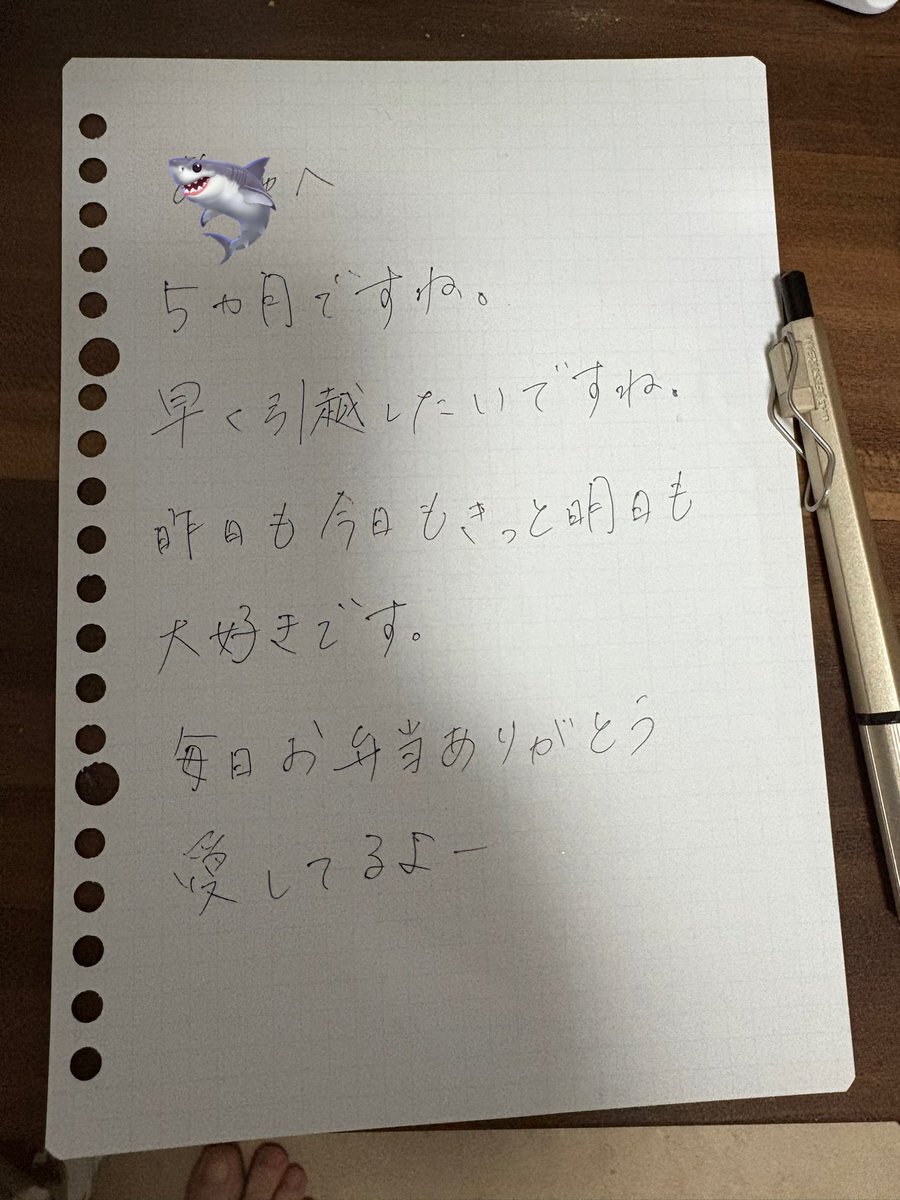 へ
5ヵ月ですね。
早く引越したいですね。
昨日も今日もきっと明日も
大好きです。
毎日お弁当ありがとう
愛してるよー